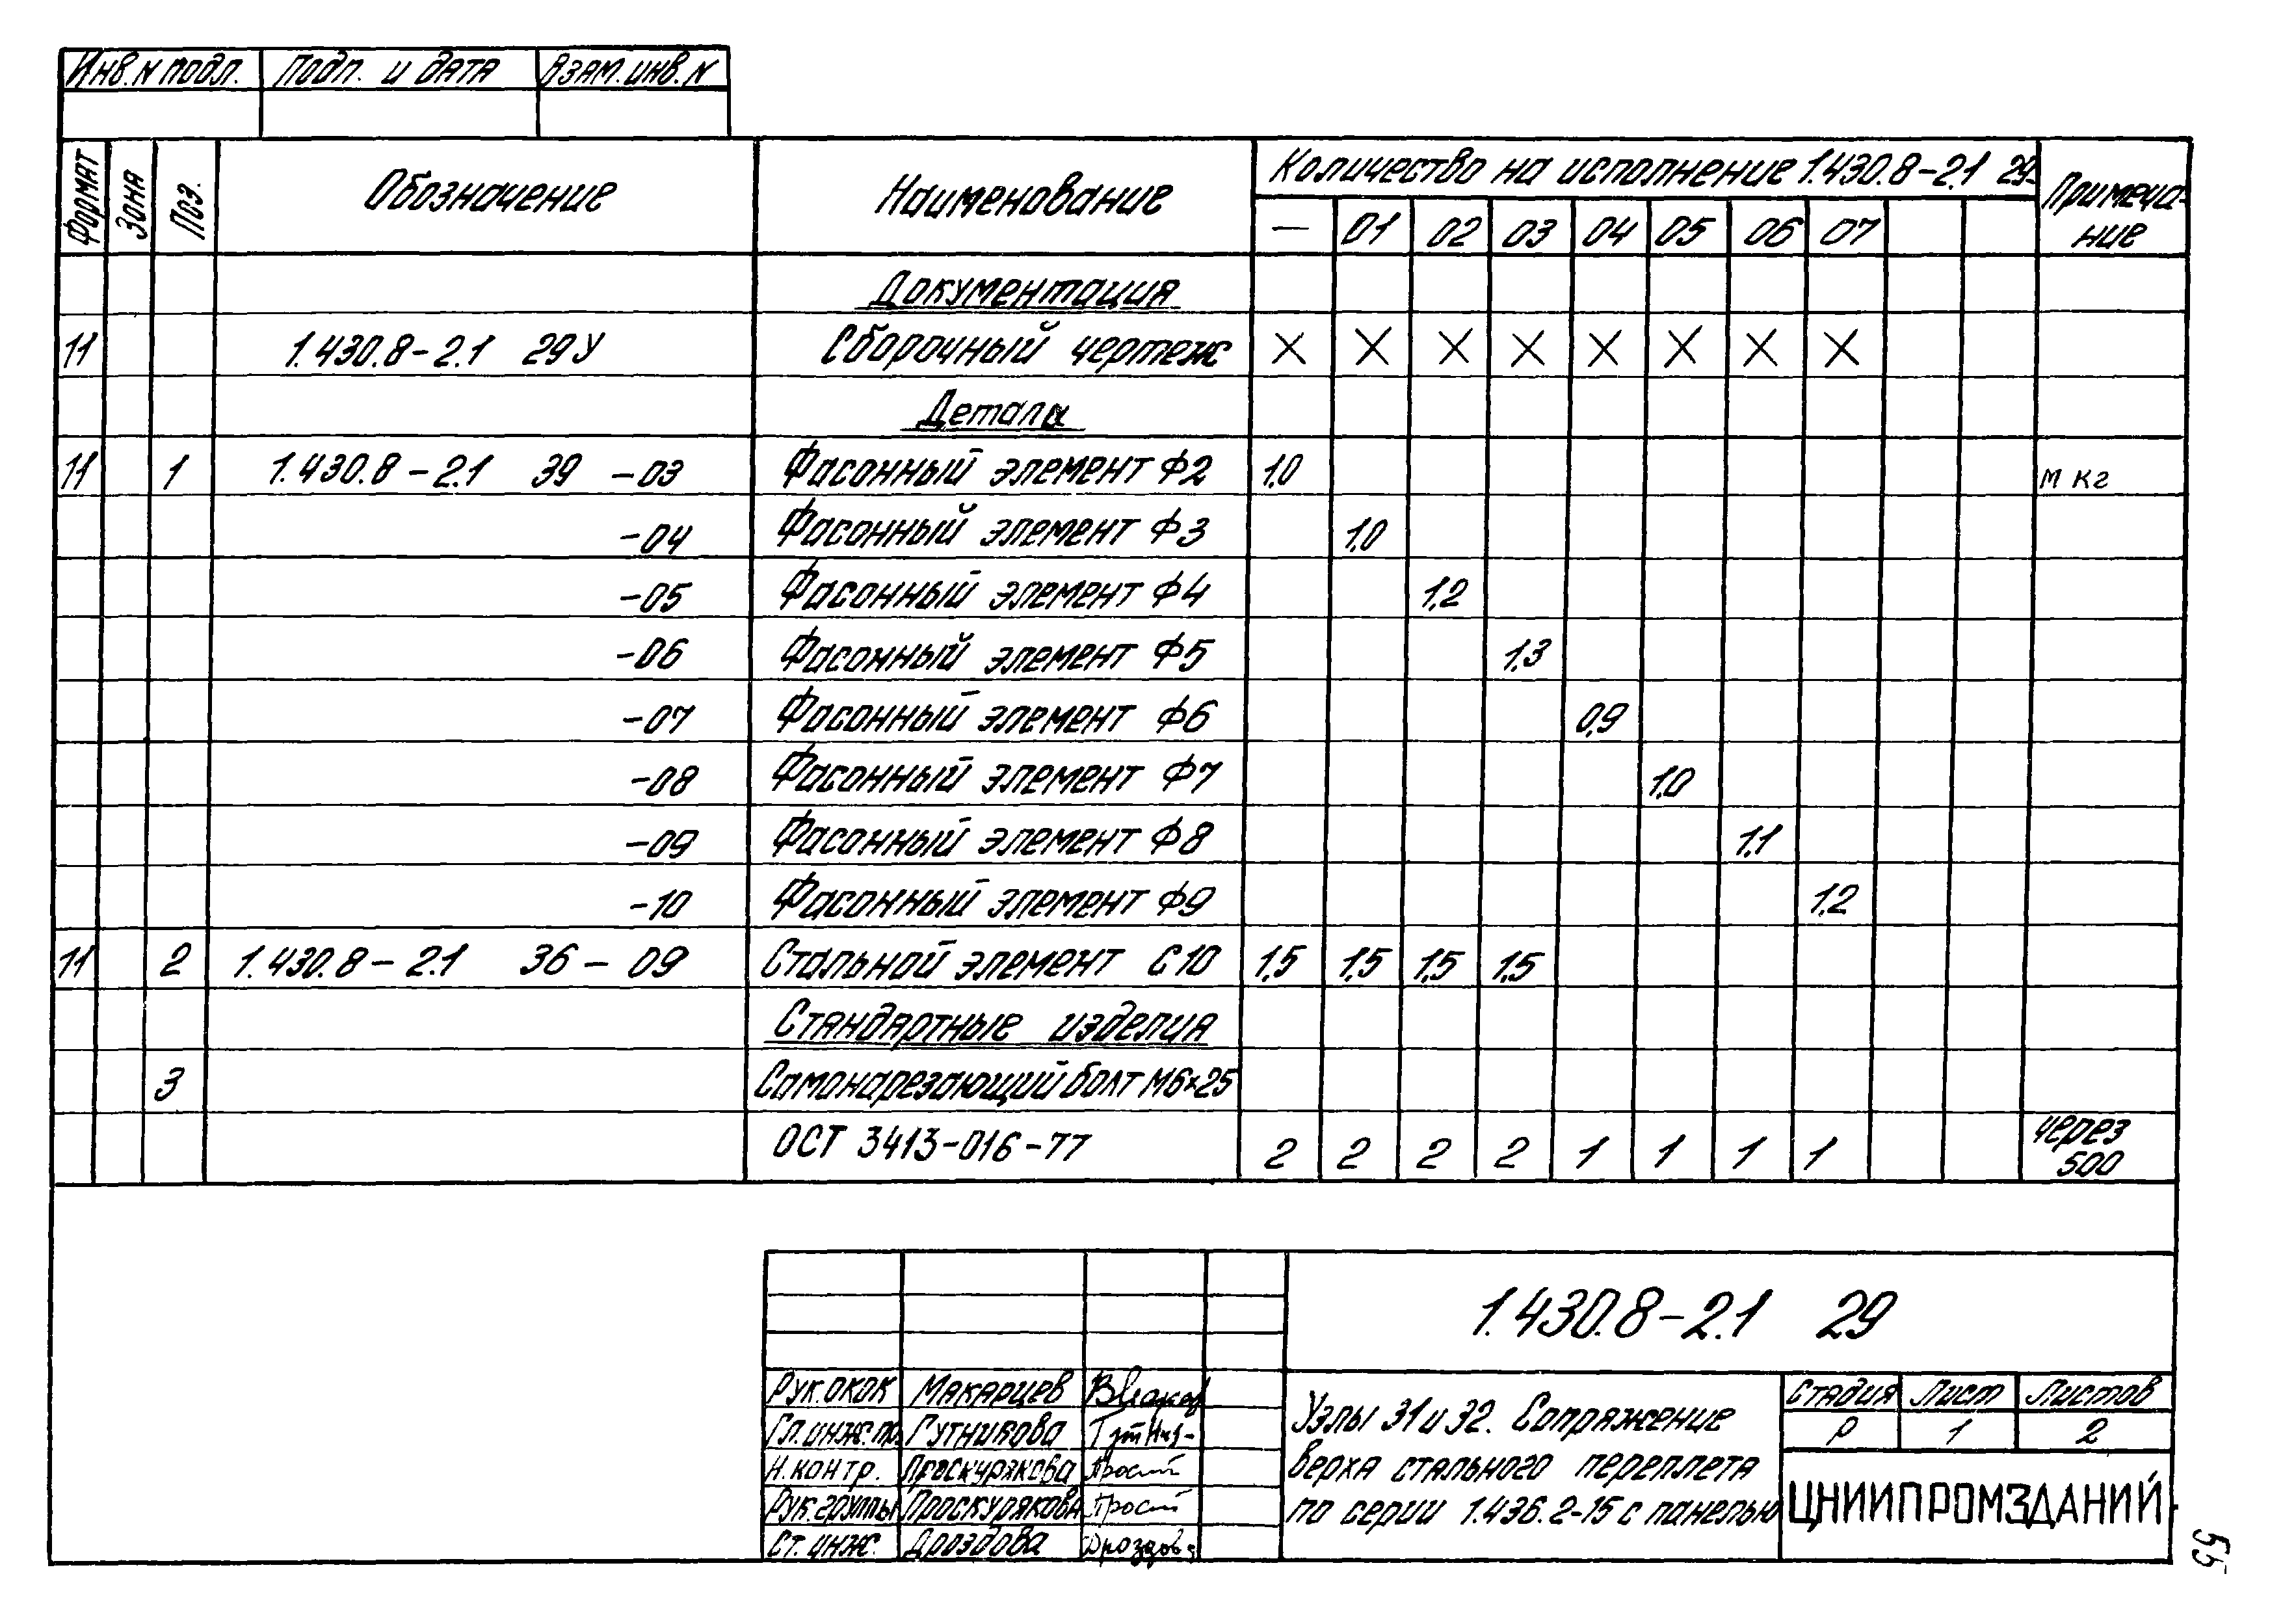 Инв. N подл. Подп. и дата Взам. инв. N
Формат Зона Поз. Обозначение Наименование Количество на исполнение 1.430.8-2.1 29- Примеча-
ние
— 01 02 03 04 05 06 07
Документация
11 1.430.8-2.1 29У Сборочный чертеж X X X X X X X X
Детали
11 1 1.430.8-2.1 39 -03 Фасонный элемент Ф2 1,0 м кг
-04 Фасонный элемент Ф3 1,0
-05 Фасонный элемент Ф4 1,2
-06 Фасонный элемент Ф5 1,3
-07 Фасонный элемент Ф6 0,9
-08 Фасонный элемент Ф7 1,0
-09 Фасонный элемент Ф8 1,1
-10 Фасонный элемент Ф9 1,2
11 2 1.430.8-2.1 36-09 Стальной элемент С10 1,5 1,5 1,5 1,5
Стандартные изделия
3 Самонарезающий болт М6×25
ОСТ 3413-016-77 2 2 2 2 1 1 1 1 через
500
1.430.8-2.1 29
Рук. ОКОК Макарцев
Гл. инж. пр. Гутникова
Н. контр. Проскурякова
Рук. группы Проскурякова
Ст. инж. Дроздова
Узлы 31 и 32. Сопряжение
верха стального переплета
по серии 1.436.2-15 с панелью
Стадия Лист Листов
Р 1 2
ЦНИИПРОМЗДАНИЙ
55